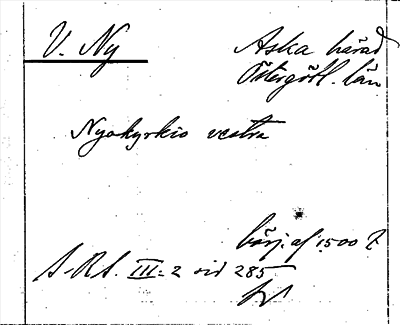 V. Ny
Aska härad
Östergötl. län
Nyakyrkio vestra
börj. af 1500 t
S.R.A. III:2 sid 285